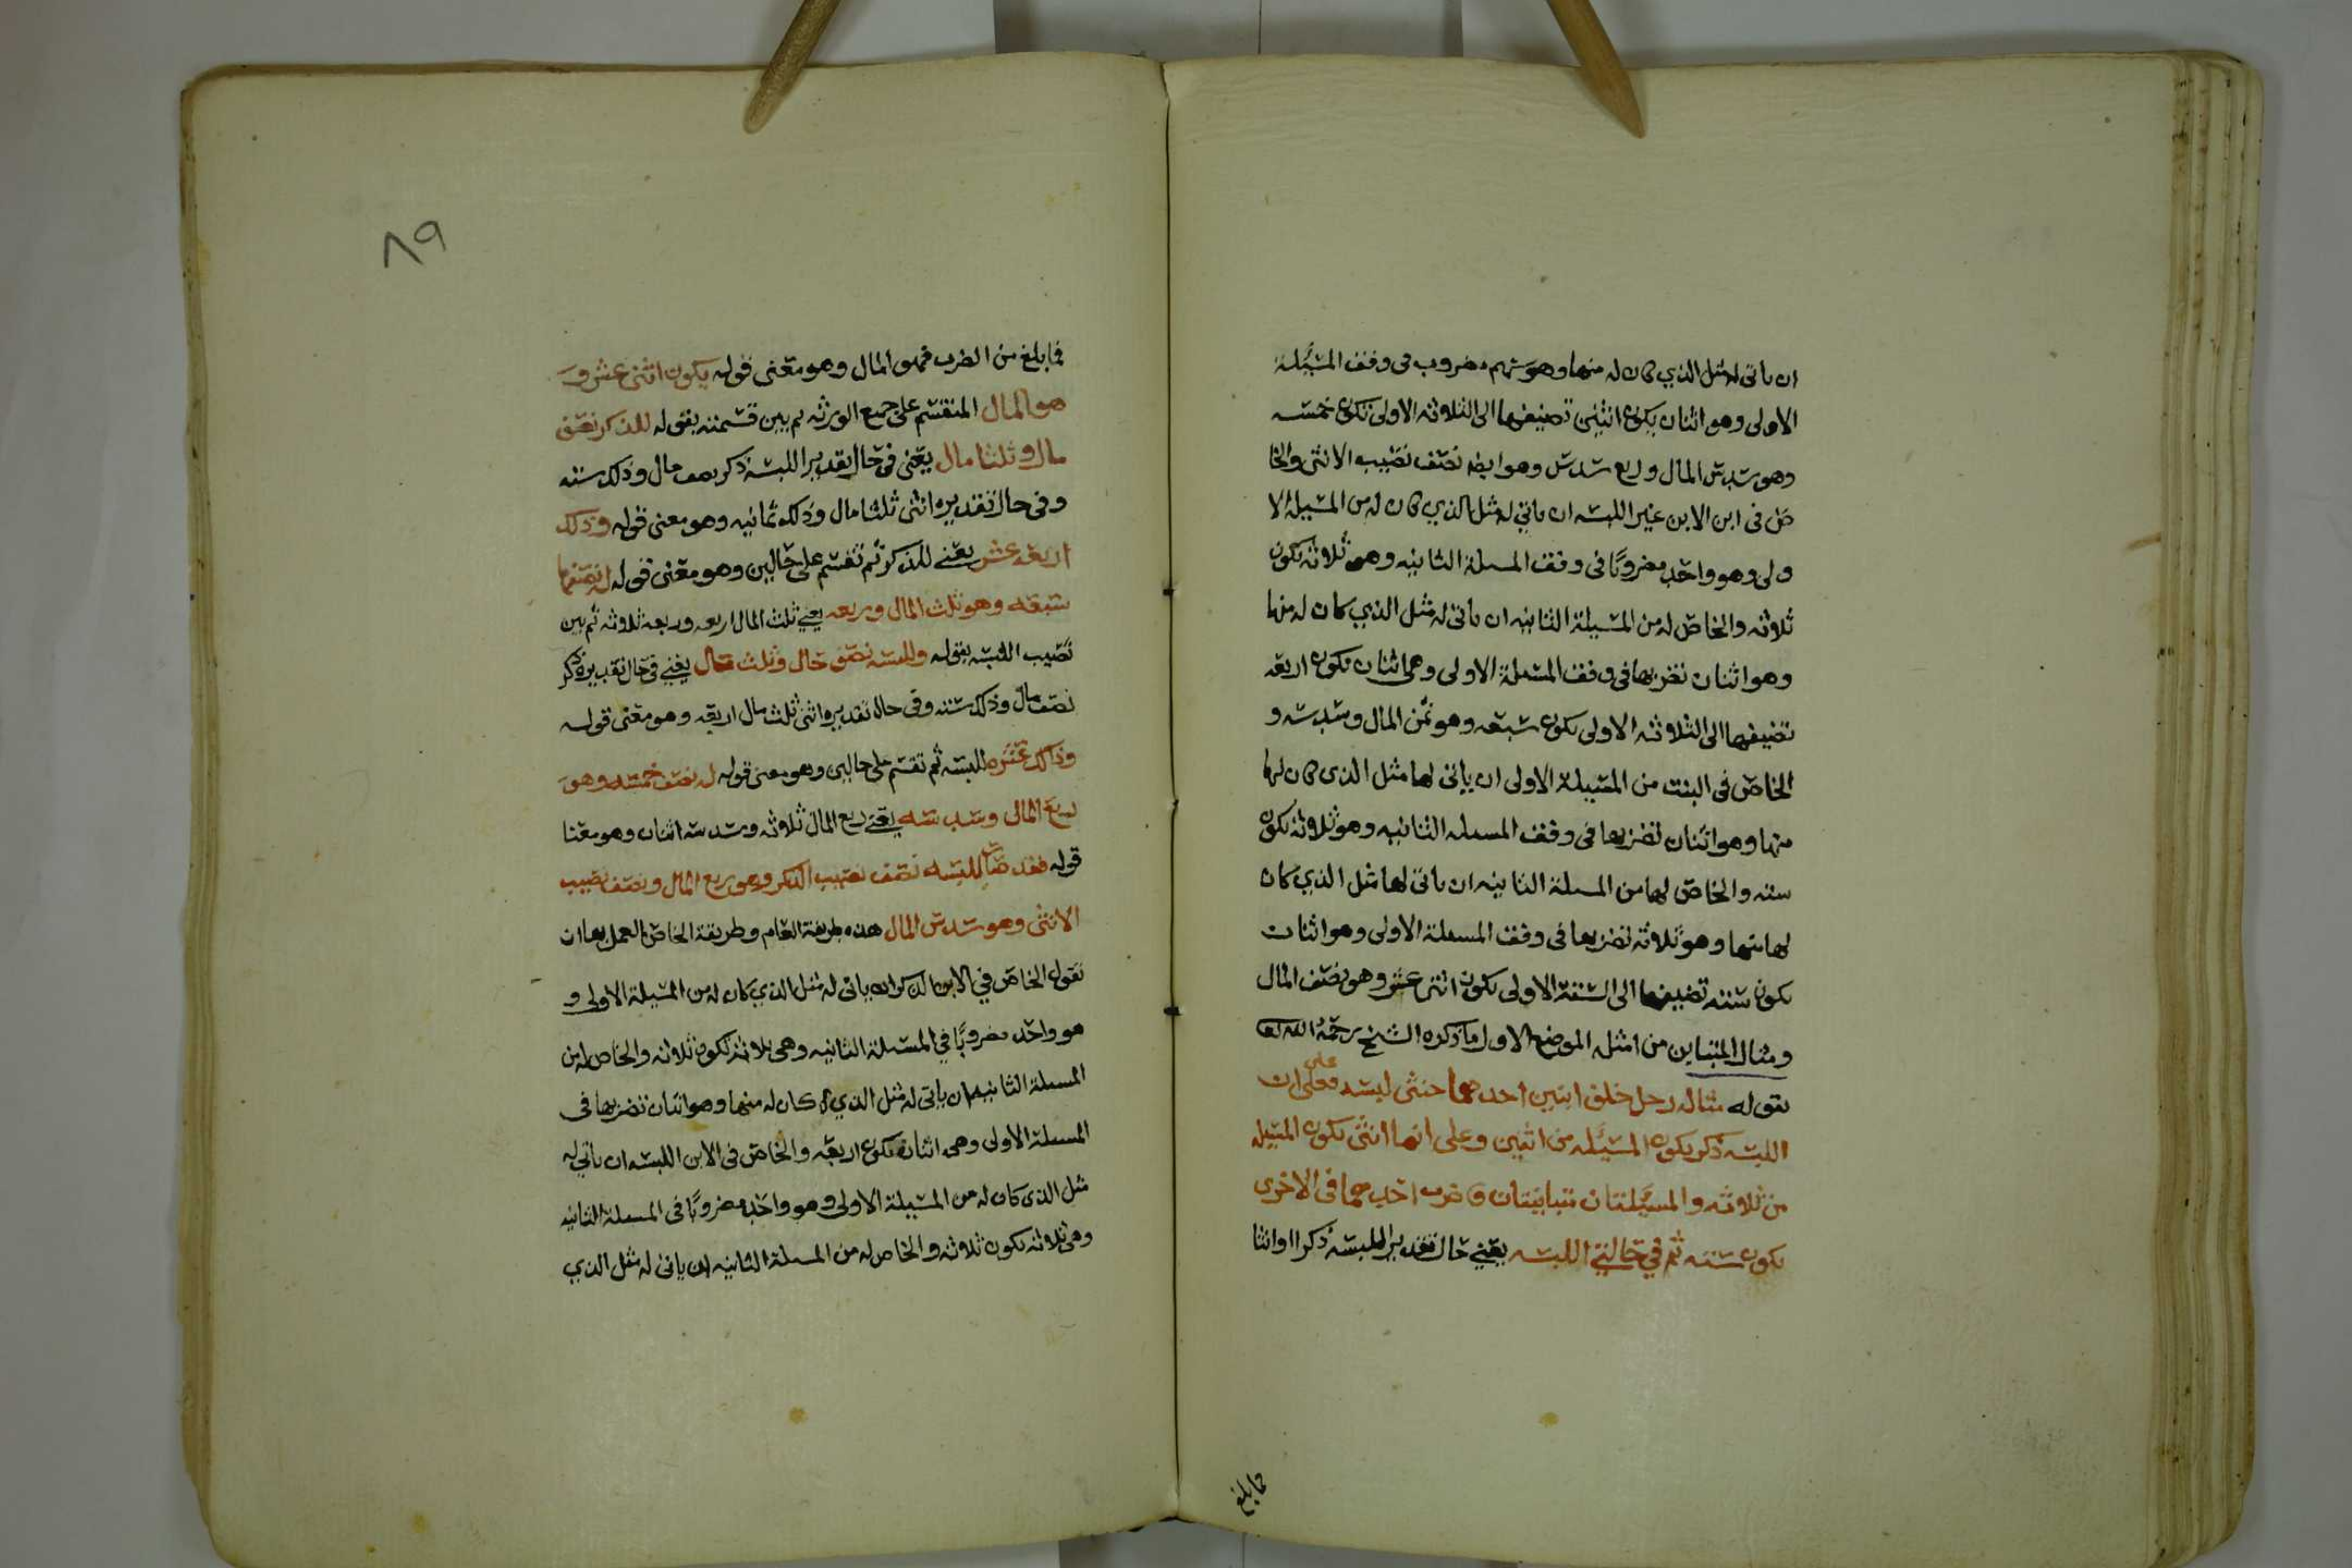 ان ياتى له مثل الذي كان له منها وهو سهم مضروب فى وفق المسئلة
الاولى وهو اثنان يكون اثنين تضيفها الى الثلاثه الاولى تكون خمسه
وهو سدس المال وربع سدس وهو ايضا نصف نصيب الانثى والخا
ص فى ابن الابن غير اللبسه ان ياتي له مثل الذي كان له من المسيلة الا
ولى وهو واحد مضروبًا فى وفق المسلة الثانيه وهو ثلاثه تكون
ثلاثه والخاص له من المسيلة الثانيه ان ياتى له مثل الذي كان له منها
وهو اثنان نضربها فى وفق المسئلة الاولى وهى اثنان تكون اربعه
تضيفها الى الثلاثه الاولى تكون سبعه وهو ثمن المال وسدسه و
الخاص فى البنت من المسيلة الاولى ان ياتى لها مثل الذى كان لها
منها وهو اثنان تضربها فى وفق المسله الثانيه وهو ثلاثه تكون
سته والخاص لها من المسلة الثانيه ان ياتى لها مثل الذي كان
لها منها وهو ثلاثه تضربها فى وفق المسلة الاولى وهو اثنان
تكون سته تضيفها الى الستة الاولى يكون اثنى عشر وهو نصف المال
ومثال المتباين من امثله الموضع الاول ما ذكره الشيخ رحمة الله
بقوله مثاله رجل خلف ابنين احدهما خنثى لبسه فعلى على ان
اللبسه ذكر يكون المسئله من اثنين وعلى انها انثى تكون المسيله
من ثلاثه والمسئلتان متباينتان فاضرب احدهما فى الاخرى
تكون سته ثم في حالتي اللبسه يعني حال تقدير اللبسه ذكرا وانثا
فما بلغ
٨٩
فما بلغ من الضرب فهو المال وهو معنى قوله يكون اثنى عشر و
هو المال المنقسم على جميع الورثه ثم بين قسمته بقوله للذكر نصف
مال وثلثا مال يعني فى حال تقدير اللبسه ذكر نصف مال وذلك سته
وفى حال تقديره انثى ثلثا مال وذلك ثمانيه وهو معنى قوله وذلك
اربعه عشر يعني للذكر ثم تقسم على حالين وهو معنى قوله له نصفها
سبعه وهو ثلث المال وربعه يعني ثلث المال اربعه وربعه ثلاثه ثم بين
نصيب اللبسه بقوله وللبسه نصف حال وثلث حال يعني فى حال تقديره ذكر
نصف مال وذلك سته وفى حال تقديره انثى ثلث مال اربعه وهو معنى قوله
وذلك عشره للبسه ثم تقسم على حالين وهو معنى قوله له نصف خمسه وهو
ربع المال وسدسه يعني ربع المال ثلاثه وسدسه اثنان وهو معنا
قوله فقد صار للبسه نصف نصيب الذكر وهو ربع المال ونصف نصيب
الانثى وهو سدس المال هذه طريقة العام وطريقة الخاص العمل بها ان
تقول الخاص في الابن الذكر ان ياتى له مثل الذي كان له من المسيلة الاولى و
هو واحد مضروبًا في المسئلة الثانيه وهى ثلاثة تكون ثلاثه والخاص له من
المسلة الثانيه ان ياتى له مثل الذي كان له منها وهو اثنان نضربها فى
المسلة الاولى وهى اثنان تكون اربعه والخاص فى الابن اللبسه ان ياتي له
مثل الذى كان له من المسيلة الاولى وهو واحد مضروبًا فى المسلة الثانيه
وهى ثلاثه تكون ثلاثه والخاص له من المسلة الثانيه ان ياتى له مثل الذي